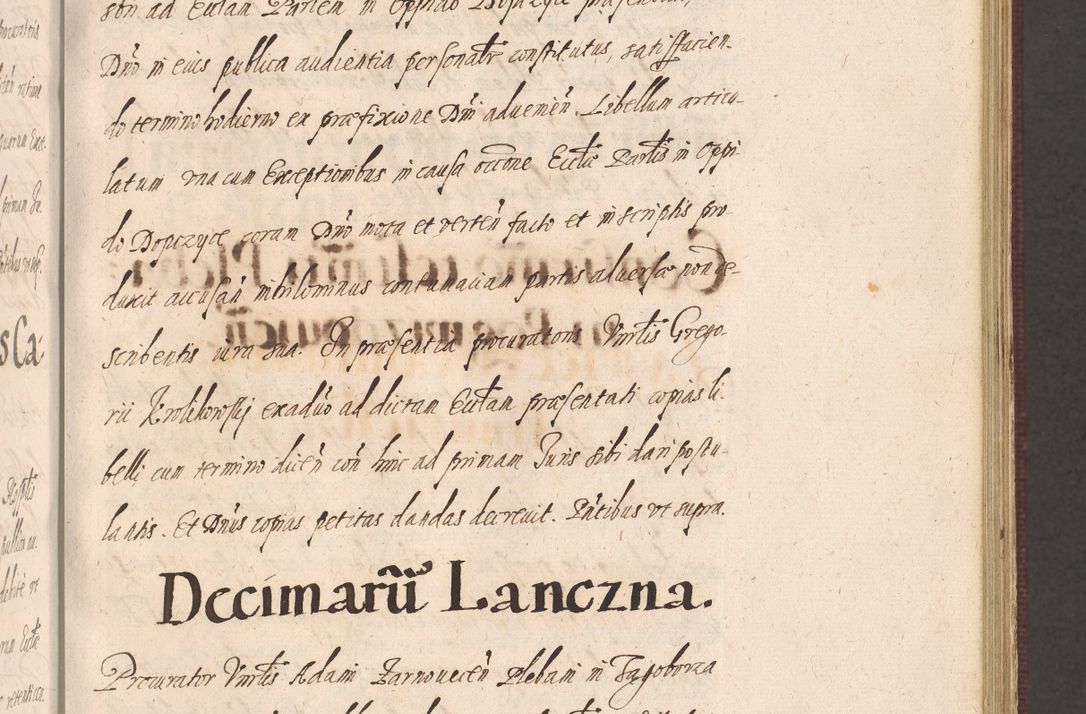 son ad Ecclam Parlem in Oppido Dopczyce
Dnō in eius publica audientia personalr̄ constitutus, satisfacien-
do termino hodierno ex præfixione Dnī adueniēn Libellum articu-
latum vna cum Exceptionibus in causa occōne Ecclæ Partis in Oppi
do Dopczyce coram Dnō mota et vertēn facto et in scriptis pro-
duxit accusān nihilominus contumaciam partis aduersæ non de-
scribentis iura sua. In præsentia procuratoris Vnrlis Grego-
rii Krolikowskij ex aduīo ad dictam Ecclam præsentati copias li-
belli cum termino dicēn con̄ hinc ad primam Juris sibi dari postu-
lantis. Et Dnūs copias petitas dandas decreuit. Pn̄tibus vt supra.
Decimarū Lanczna.
Procurator Vnrlis Adami Zarnouecēn Plebani in